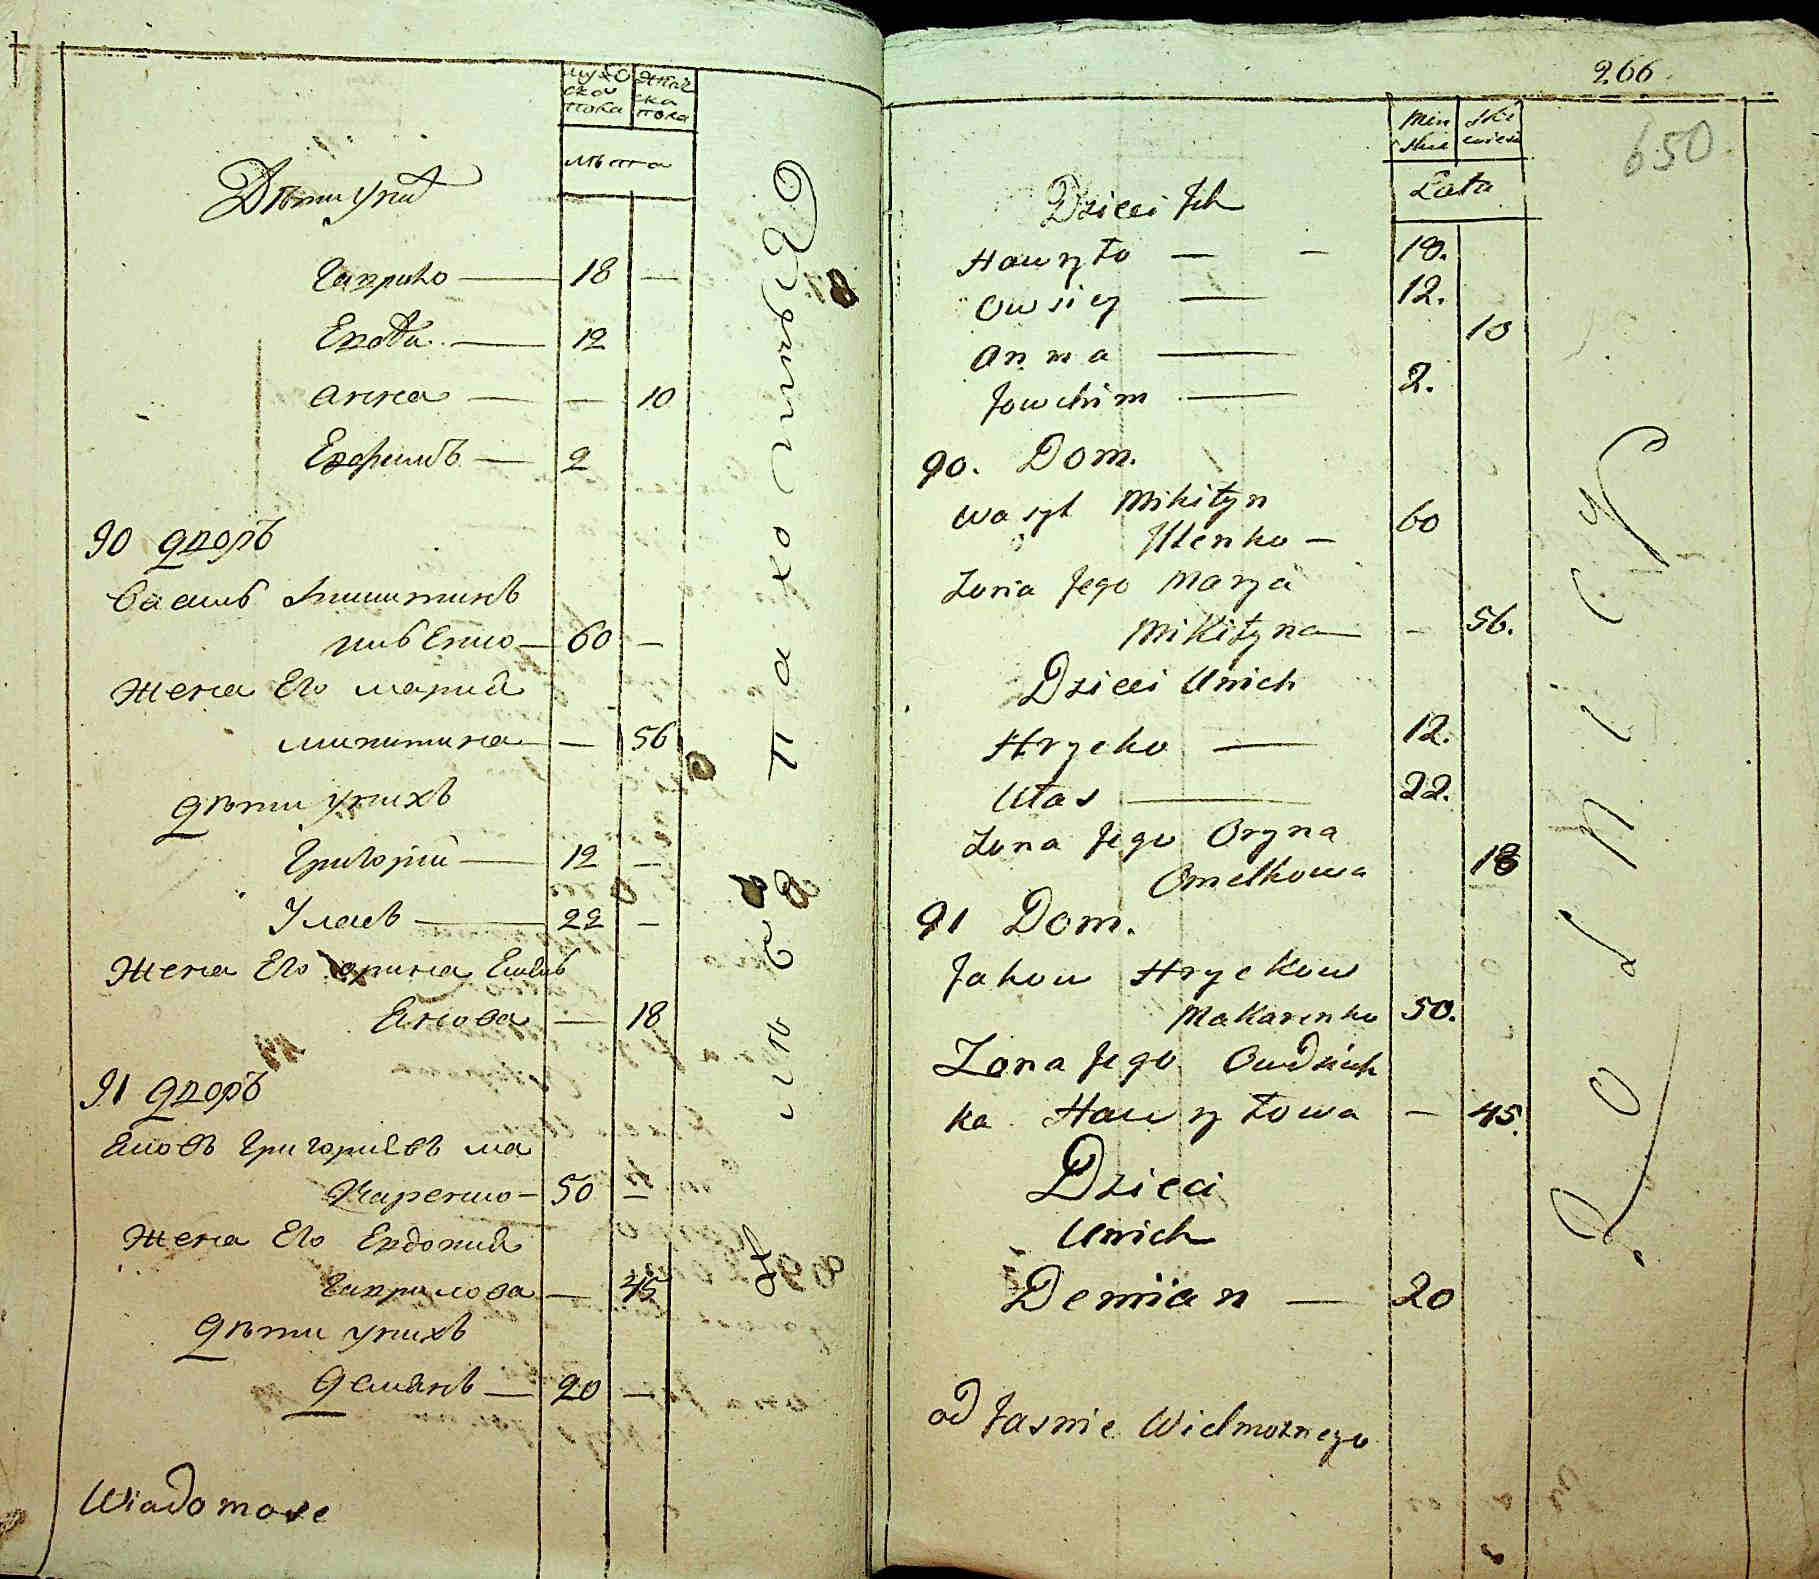 мужескои пола
женска пола
лѣта
Дѣти у них
Гаврило — 18 —
Евсѣй — 12
анна — — 10
Ефримъ — 2
90 дворъ
Василь Микитинъ
60 —
жена Его мария
микитина — — 56
дѣти унихъ
Григорий — 12 —
Уласъ — 22 —
жена Его орина Емель
Янова — 18
91 дворъ
Яковъ Григориевъ ма
каренко — 50 —
жена Его Евдокия
Гаврилова — 45
дѣти унихъ
Демянъ — 20 —
Wiadomosc
266
650
Men skie
Lata
Dzieci Ich
Hawryło — — 18.
Owsiey — 12.
Anna — 10
Jowchim — 2.
90. Dom.
Wasyl Mikityn
Ulenko — 60
Zona Jego Marya
Mikityna — — 56.
Dzieci Unich
Hrycko — 12.
Ułas — 22.
Zona Jego Oryna
Omelkowa 18
91 Dom.
Jakow Hryckow
Makarenko 50.
Zona Jego Owdziuch
ka Hawryłowa — 45.
Dzieci
Unich
Demian — 20
od Jasnie Wielmoznego